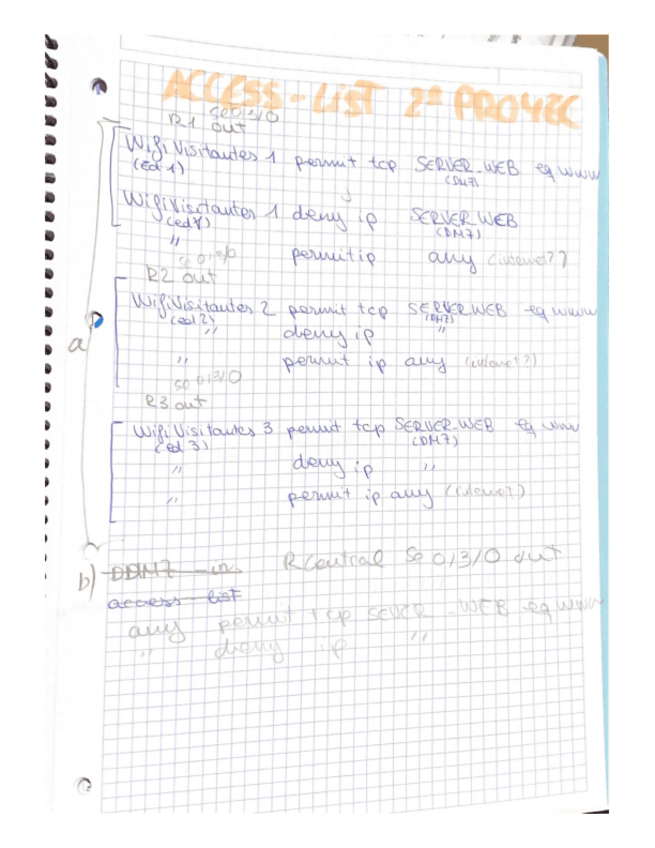 ACCESS-LIST 2º PROYEC
se0/3/0
R1 out
Wifi Visitantes 1 permit tcp SERVER_WEB eq www
(ed 1) (DMZ)
Wifi Visitantes 1 deny ip SERVER WEB
(ed 1) (DMZ)
" permit ip any (internet??)
se 0/3/0
R2 out
Wifi Visitantes 2 permit tcp SERVER WEB eq www
(ed 2) (DMZ)
" deny ip "
" permit ip any (internet?)
a
se 0/3/0
R3 out
Wifi Visitantes 3 permit tcp SERVER_WEB eq www
(ed 3) (DMZ)
" deny ip "
" permit ip any (internet?)
b) DDMZ in RCentral Se 0/3/0 out
access list
any permit tcp SERVER_WEB eq www
" deny ip "